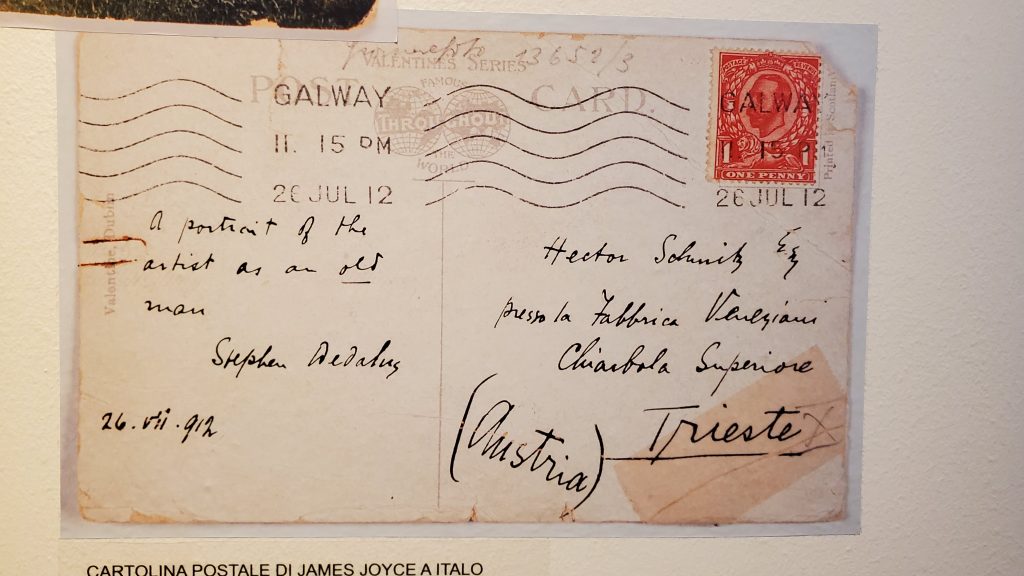 13652/3
VALENTINES SERIES
POST CARD.
FAMOUS
THROUGHOUT
THE
WORLD
GALWAY
11. 15 PM
26 JUL 12
GALWAY
1 15 PM
26 JUL 12
1 1
ONE PENNY
Printed in Scotland
Valentine Dublin
A portrait of the
artist as an old
man
Stephen Dedalus
26.vii.912
Hector Schmitz Esq
presso la Fabbrica Veneziani
Chiarbola Superiore
Trieste
(Austria)
CARTOLINA POSTALE DI JAMES JOYCE A ITALO